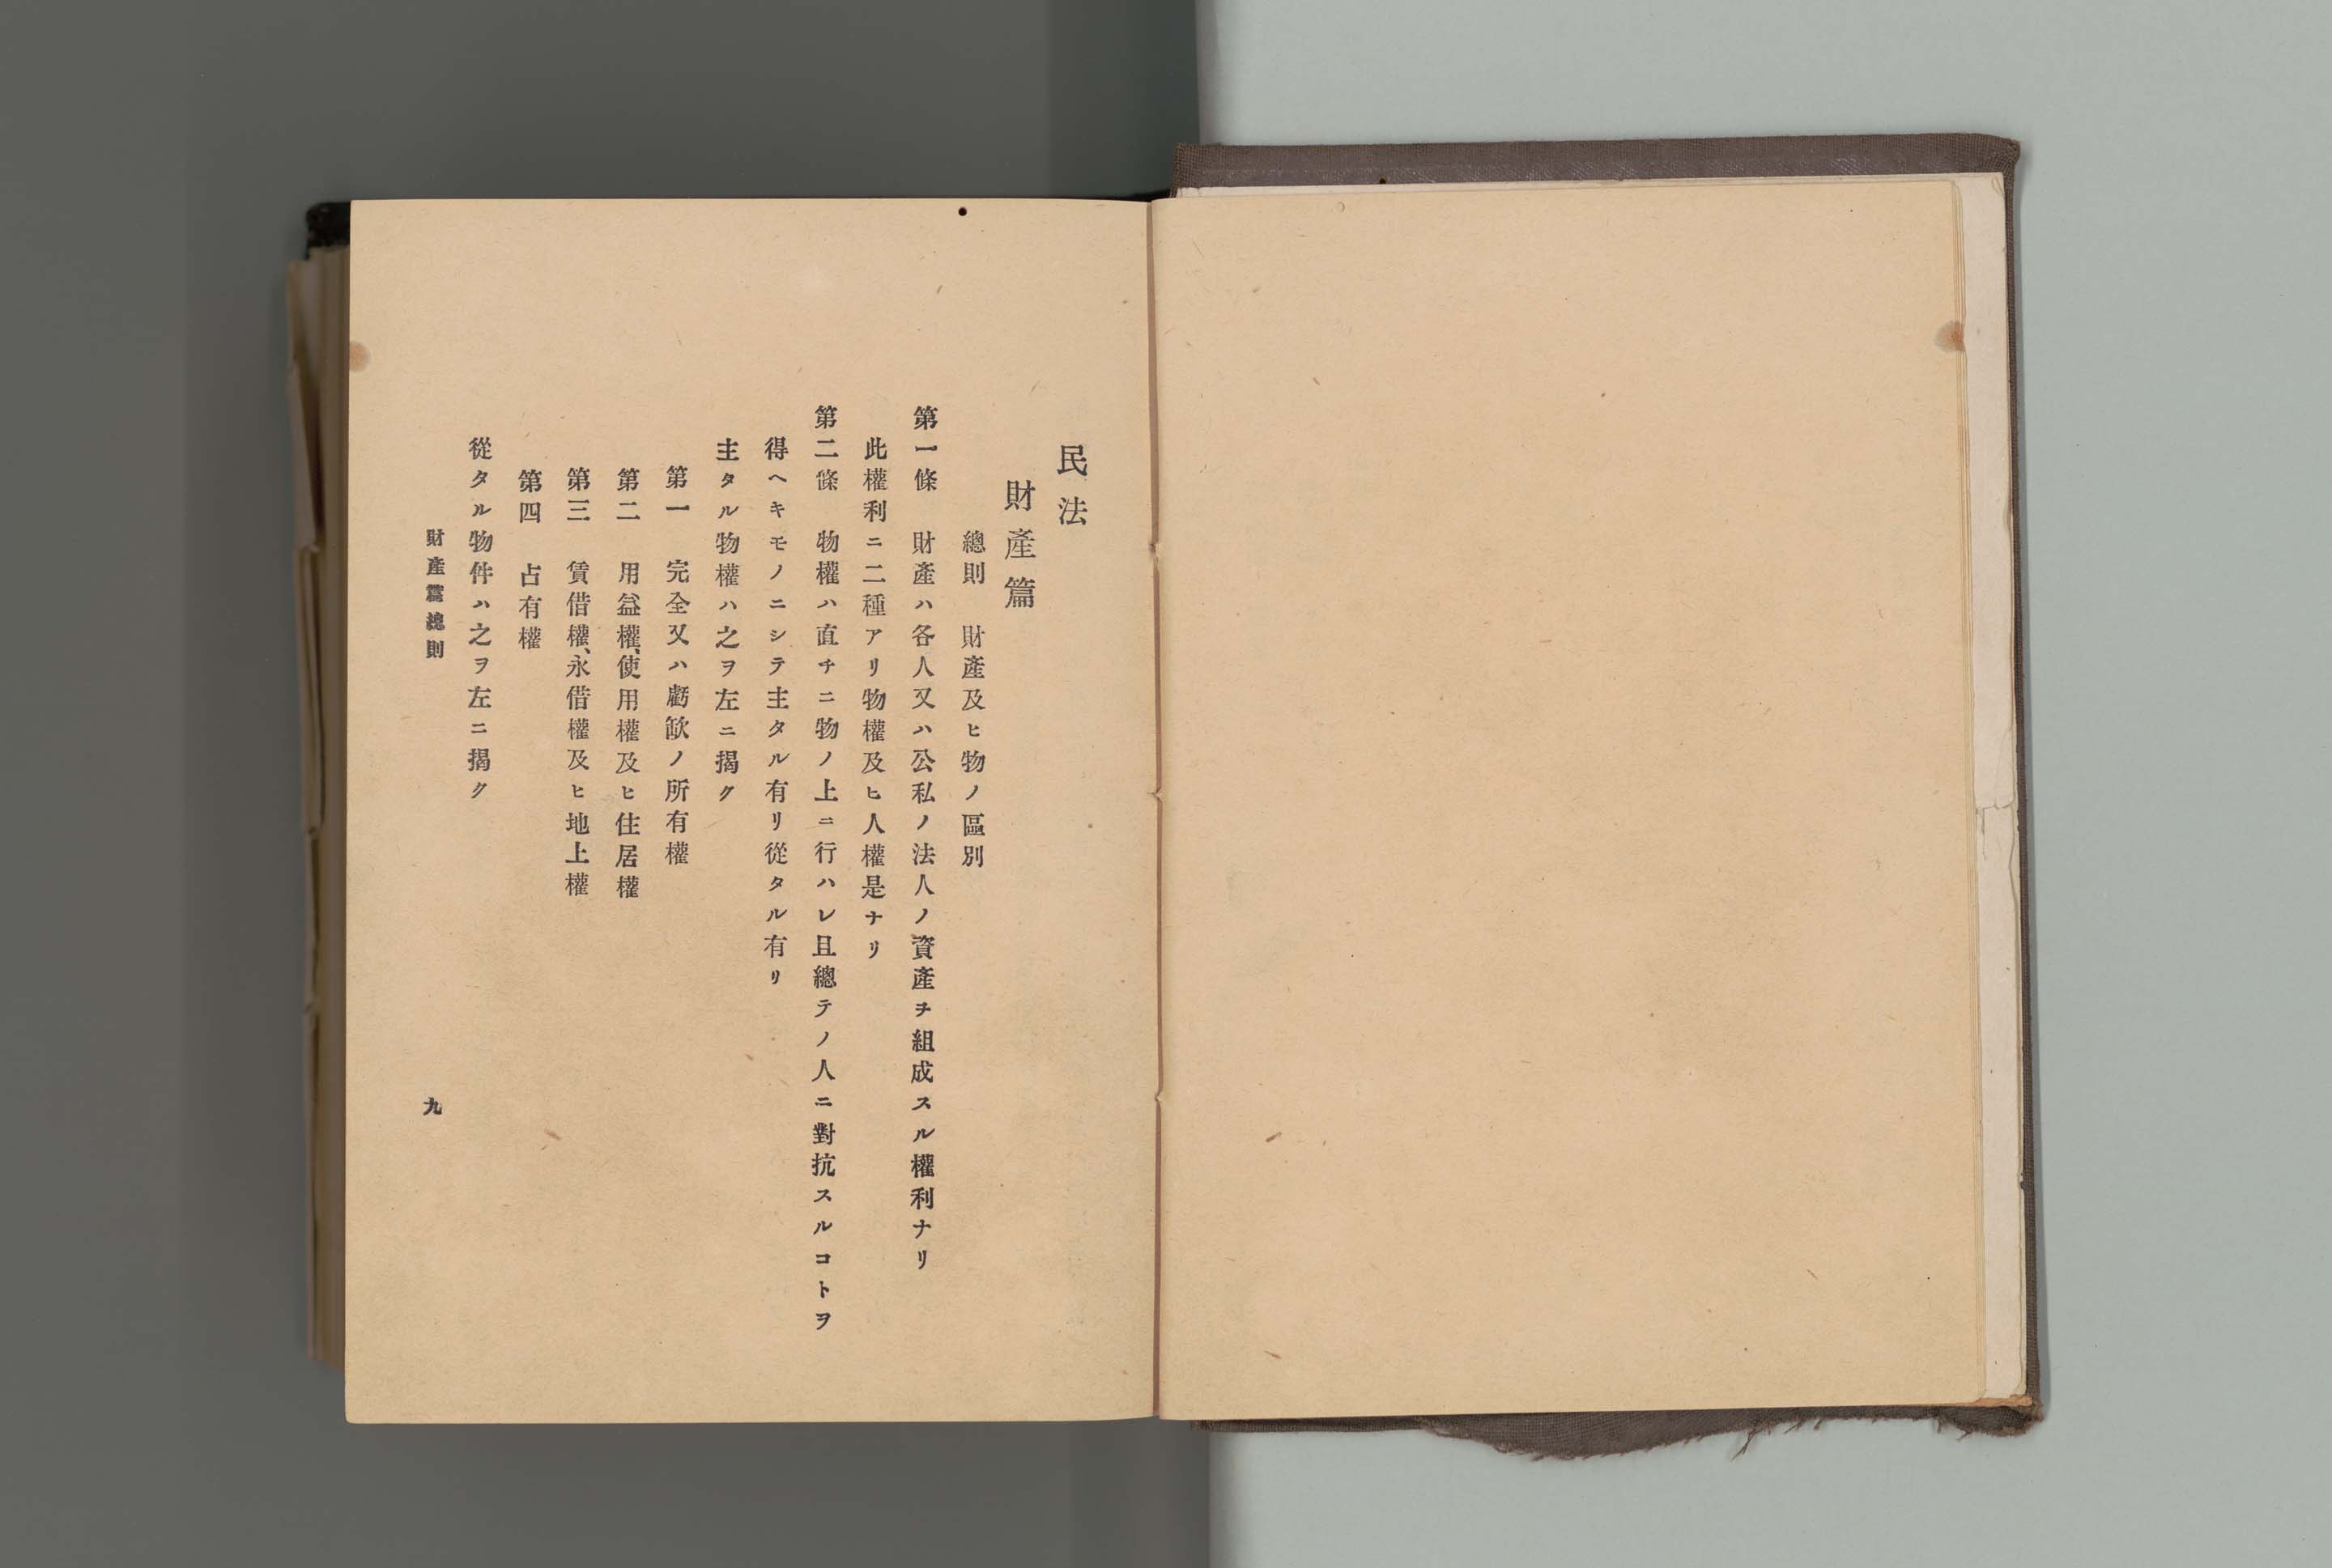 民法
財產篇
總則　財產及ヒ物ノ區別
第一條　財產ハ各人又ハ公私ノ法人ノ資產ヲ組成スル權利ナリ
此權利ニ二種アリ物權及ヒ人權是ナリ
第二條　物權ハ直チニ物ノ上ニ行ハレ且總テノ人ニ對抗スルコトヲ
得ヘキモノニシテ主タル有リ從タル有リ
主タル物權ハ之ヲ左ニ揭ク
第一　完全又ハ虧缺ノ所有權
第二　用益權、使用權及ヒ住居權
第三　賃借權、永借權及ヒ地上權
第四　占有權
從タル物件ハ之ヲ左ニ揭ク
財產篇總則　九